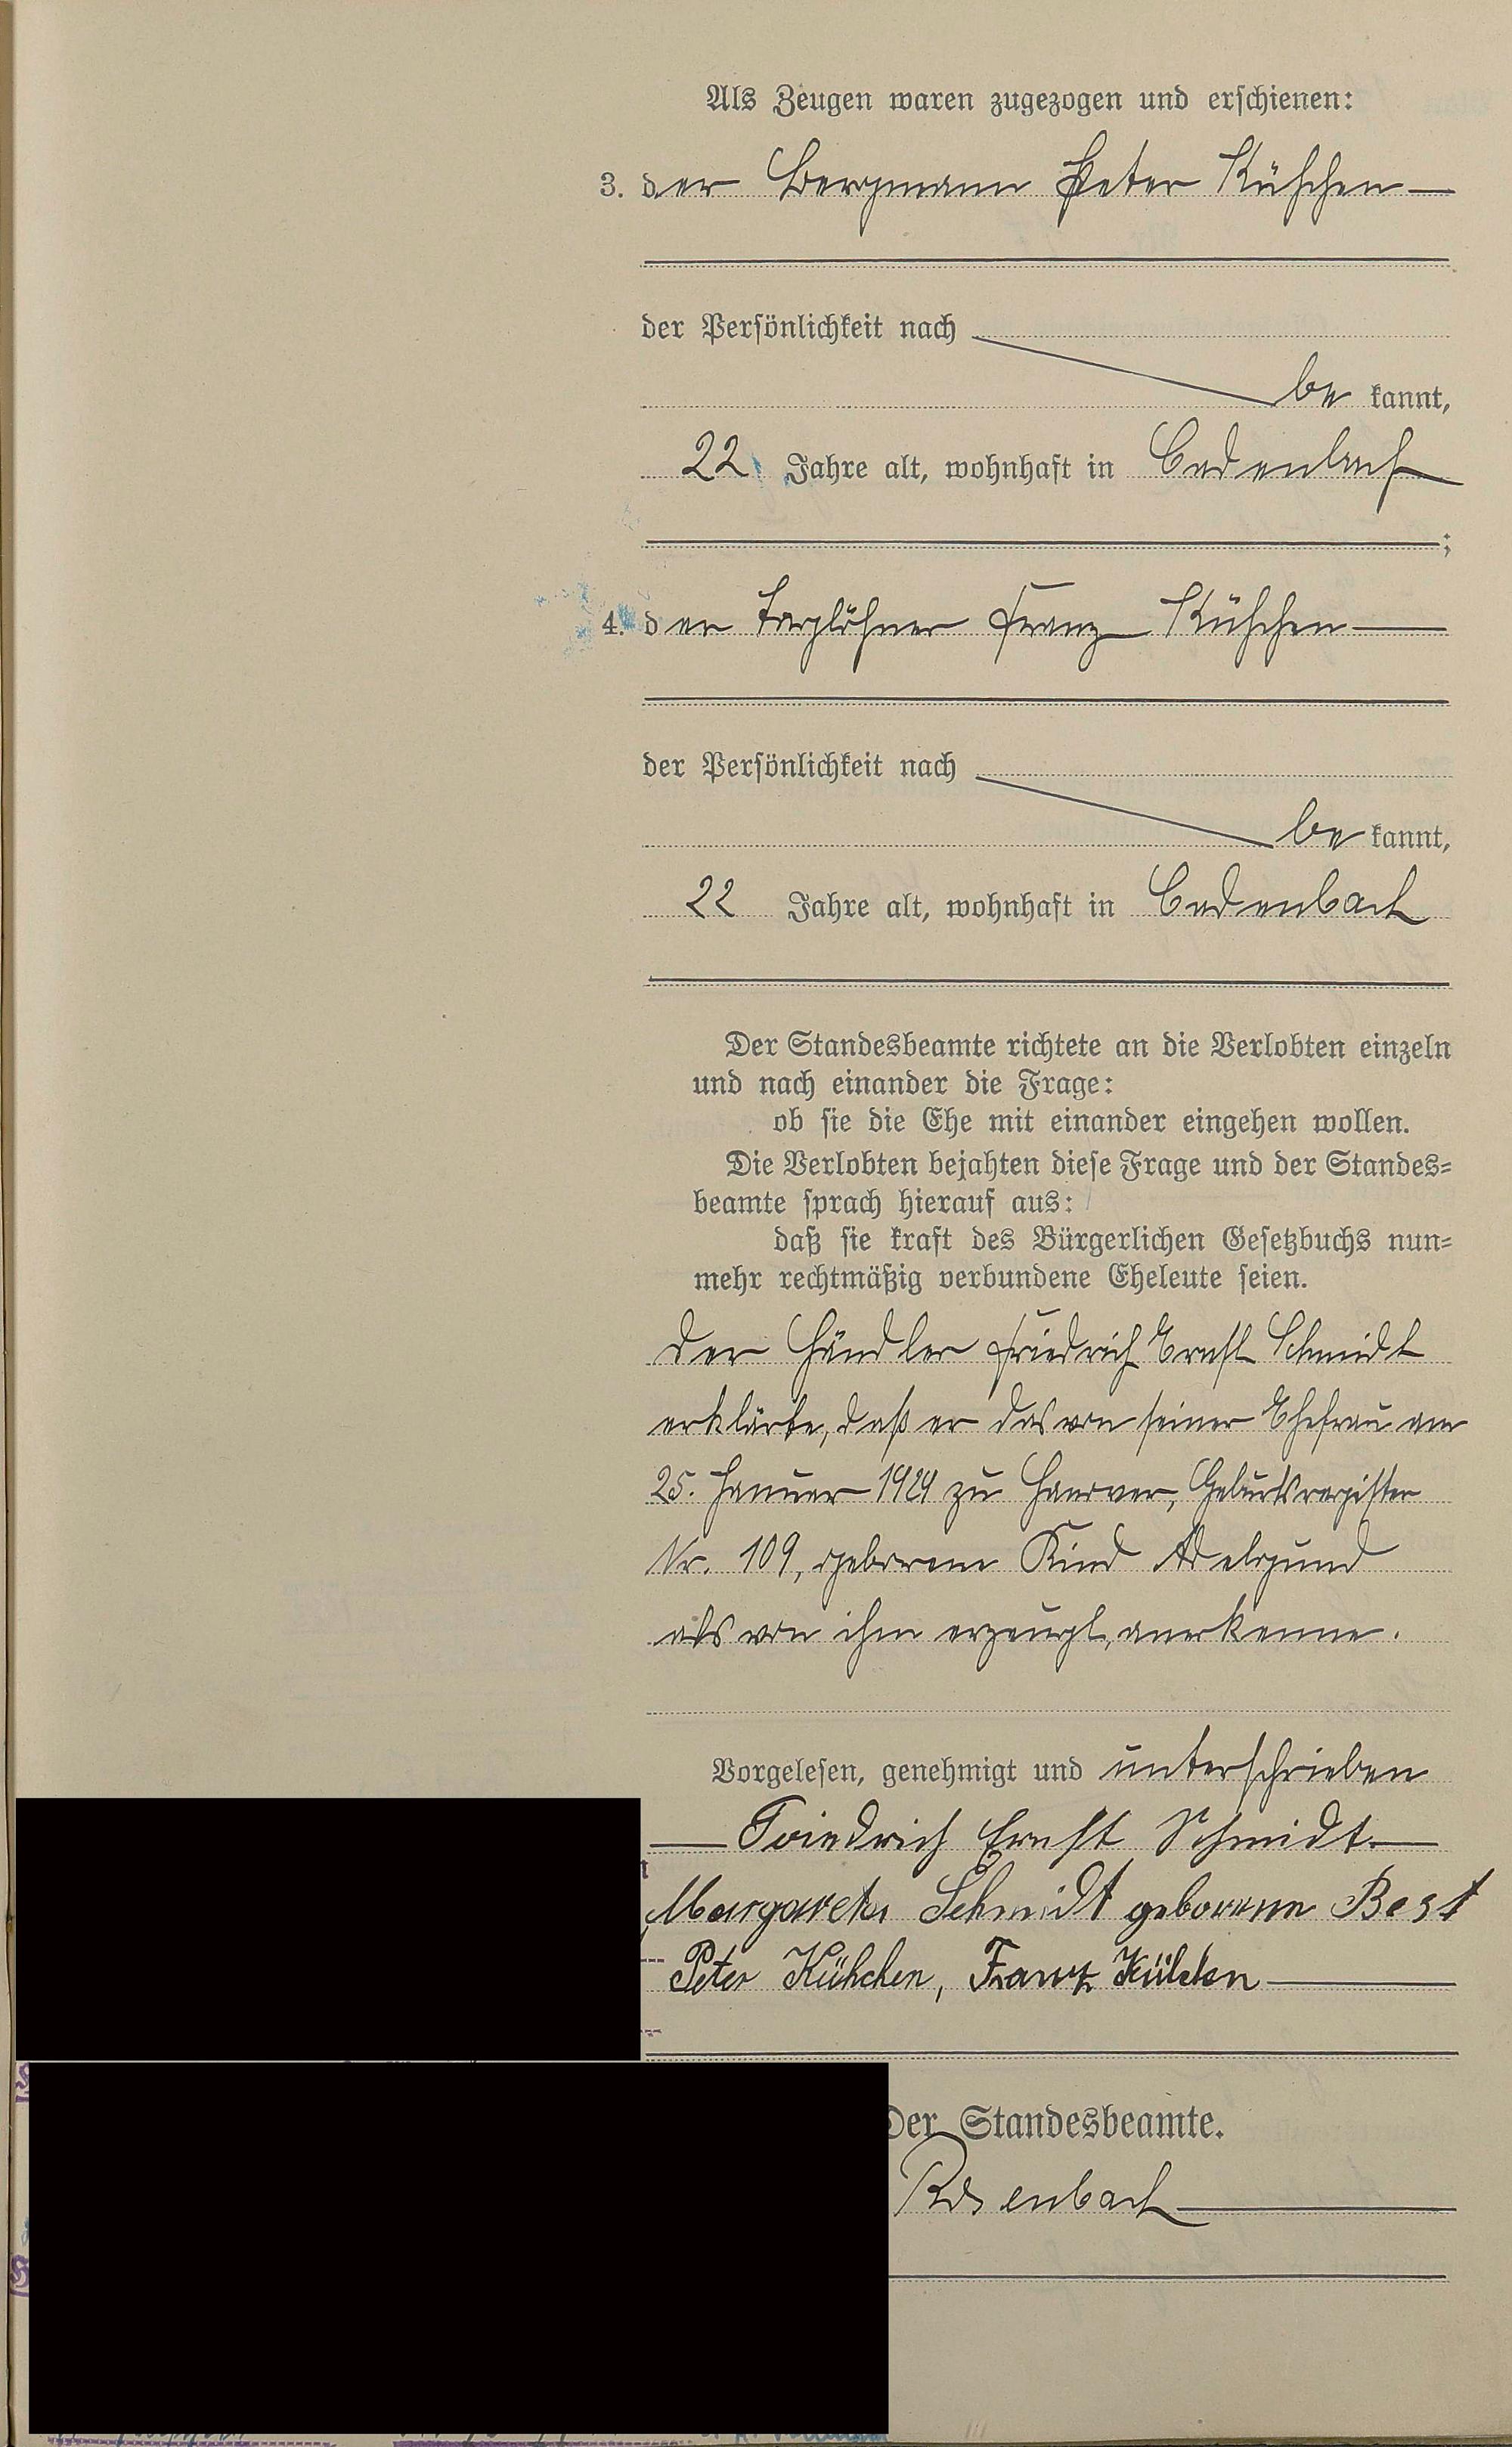 Als Zeugen waren zugezogen und erschienen:
3. der Bergmann Peter Kühchen
der Persönlichkeit nach
be kannt,
22 Jahre alt, wohnhaft in
4. der Taglöhner Franz Kühchen
der Persönlichkeit nach
be kannt,
22 Jahre alt, wohnhaft in
Der Standesbeamte richtete an die Verlobten einzeln
und nach einander die Frage:
ob sie die Ehe mit einander eingehen wollen.
Die Verlobten bejahten diese Frage und der Standes-
beamte sprach hierauf aus:
daß sie kraft des Bürgerlichen Gesetzbuchs nun-
mehr rechtmäßig verbundene Eheleute seien.
Der Händler Friedrich Ernst Schmidt
erklärte, daß er das von seiner Ehefrau am
25. Januar 1924 zu Hanover, Geburtsregister
Nr. 109, geborene Kind Adelgund
als von ihm erzeugt, anerkenne.
Vorgelesen, genehmigt und unterschrieben
Friedrich Ernst Schmidt.
Margareta Schmidt geborene Best
Peter Kühchen, Franz
Der Standesbeamte.
Rosenbach